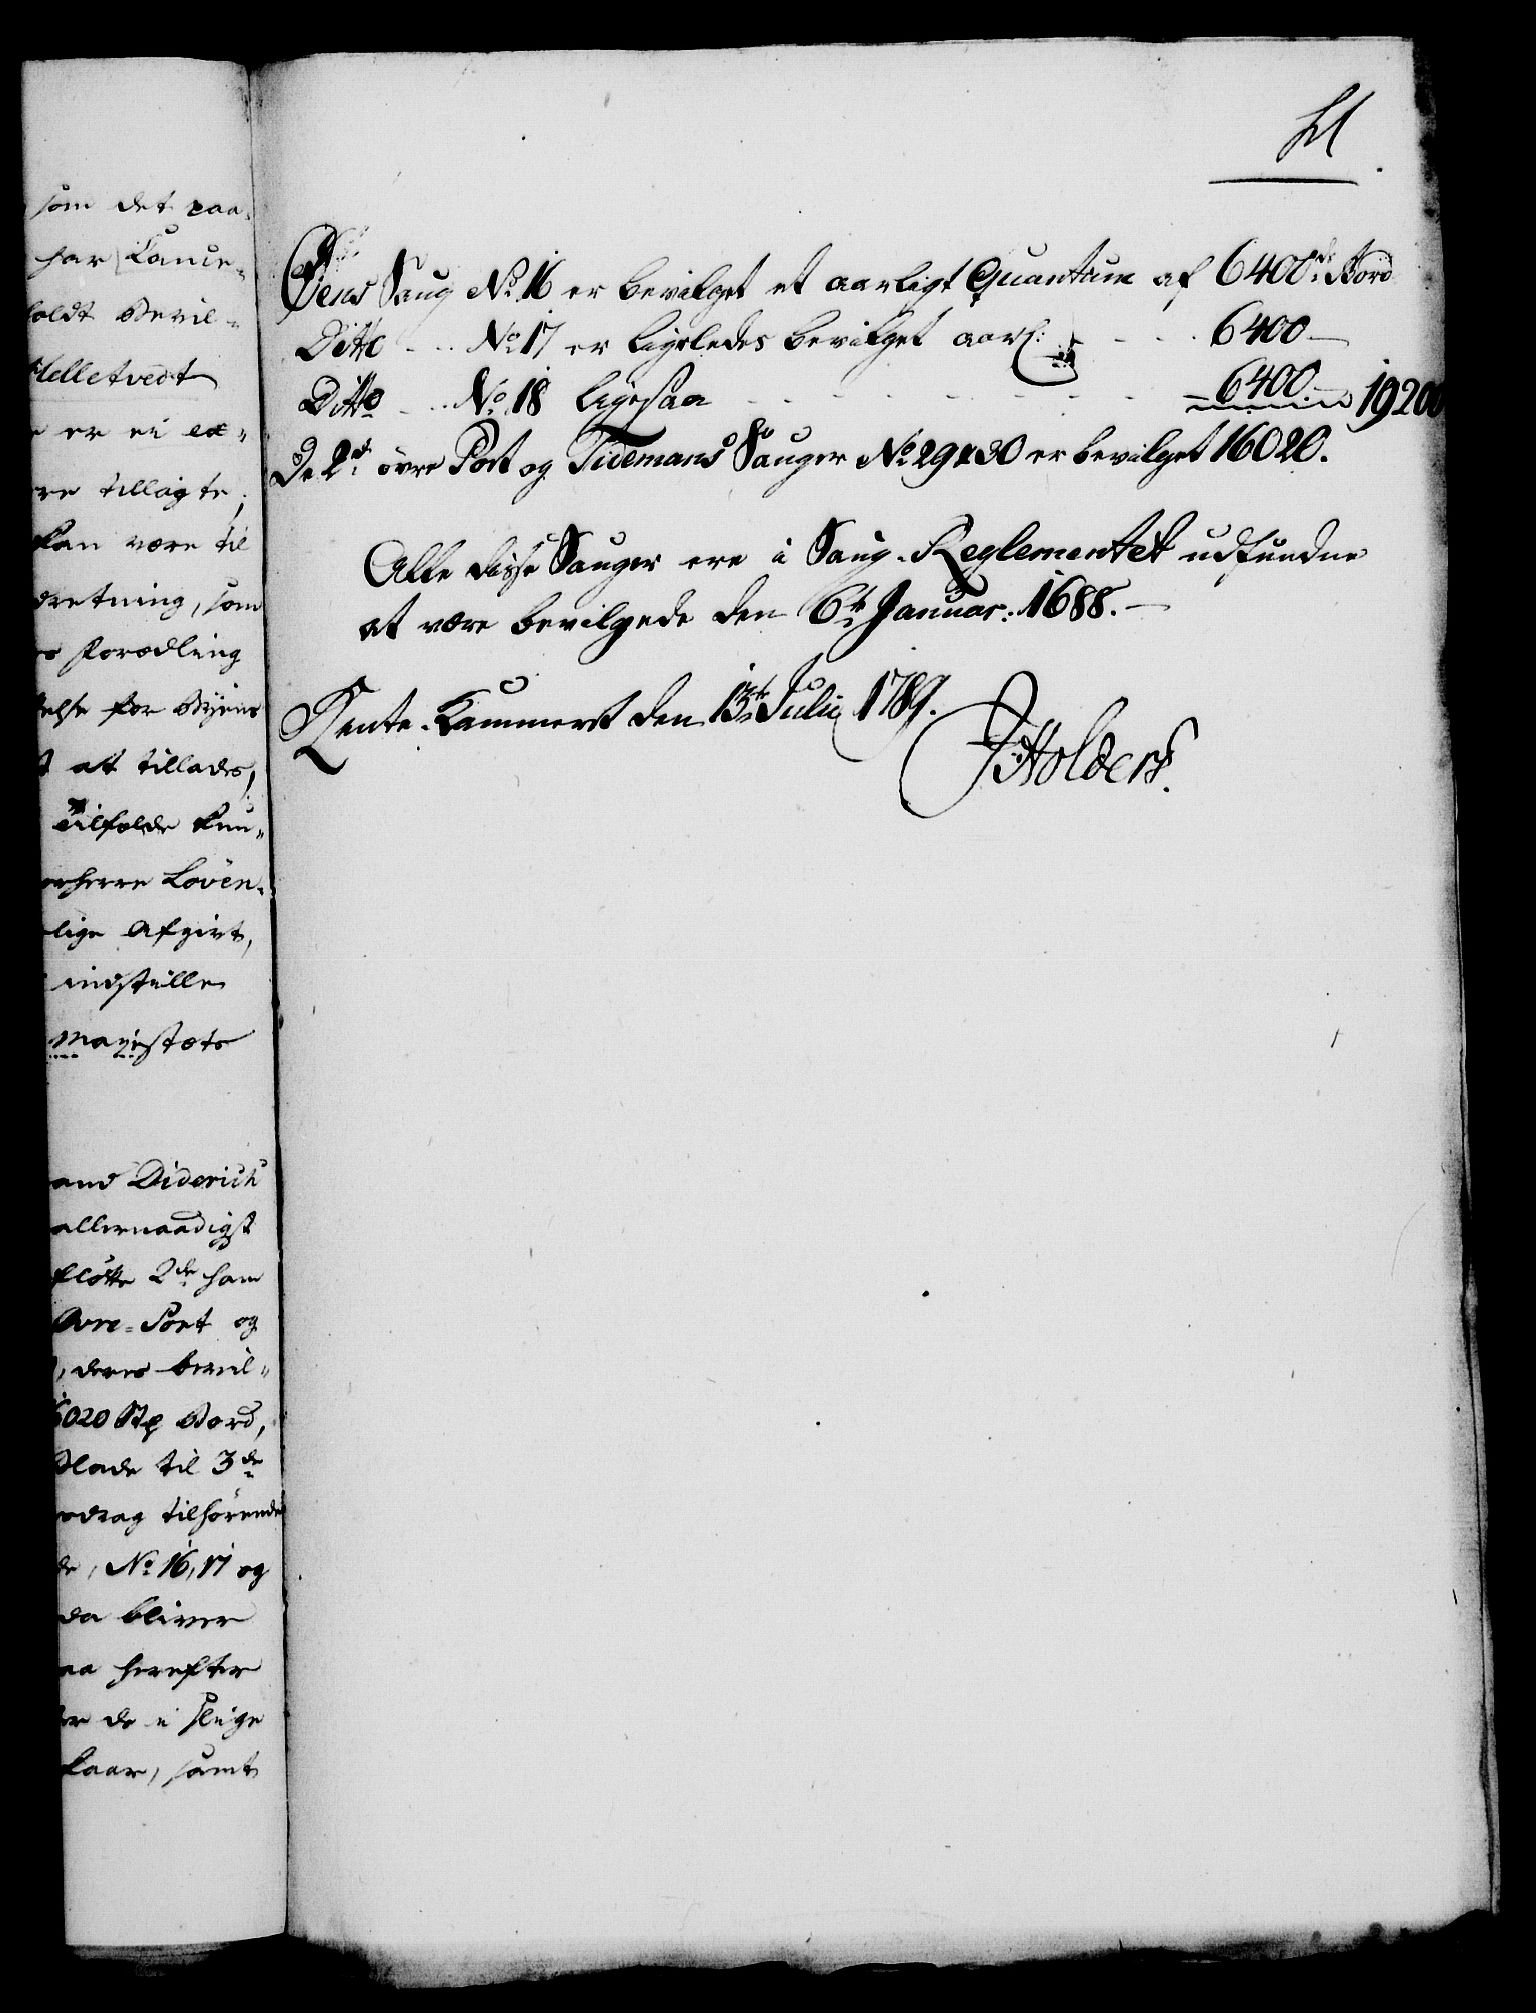 som det paa-
har Cance-
holdt Bevil-
Helletvedt
er ei ex-
re tillagte;
kan være til
dretning, som
Forædling
else for Byens
at tillades,
Tilfælde kun-
erherre Löven-
lige Afgivt,
indstilles
Mayestæts
and Diderich
allernaadigst
fløtte 2de ham
Øvre-Port og
, deres bevil-
6020 Stk Bord,
Blade til 3de
odrag tilhørende
de, No 16, 17 og
da bliver
aa herefter
er de i slige
kaar, samt
Saug No 16 er bevilget et aarligt Quantum af 6400de Bord
Ditto - - No 17 er ligeledes bevilget aarl: - - - 6400 -
Ditto - - No 18 ligesaa - - - - - - - - 6400 - 19200
De 2de øvre Port og Tidemans Sauger No 29 & 30 er bevilget 16020.
Alle disse Sauger ere i Saug-Reglementet udfundne
at være bevilgede den 6te Januar: 1688. -
Rente-Kammeret den 13te Julii 1789.
Holders.